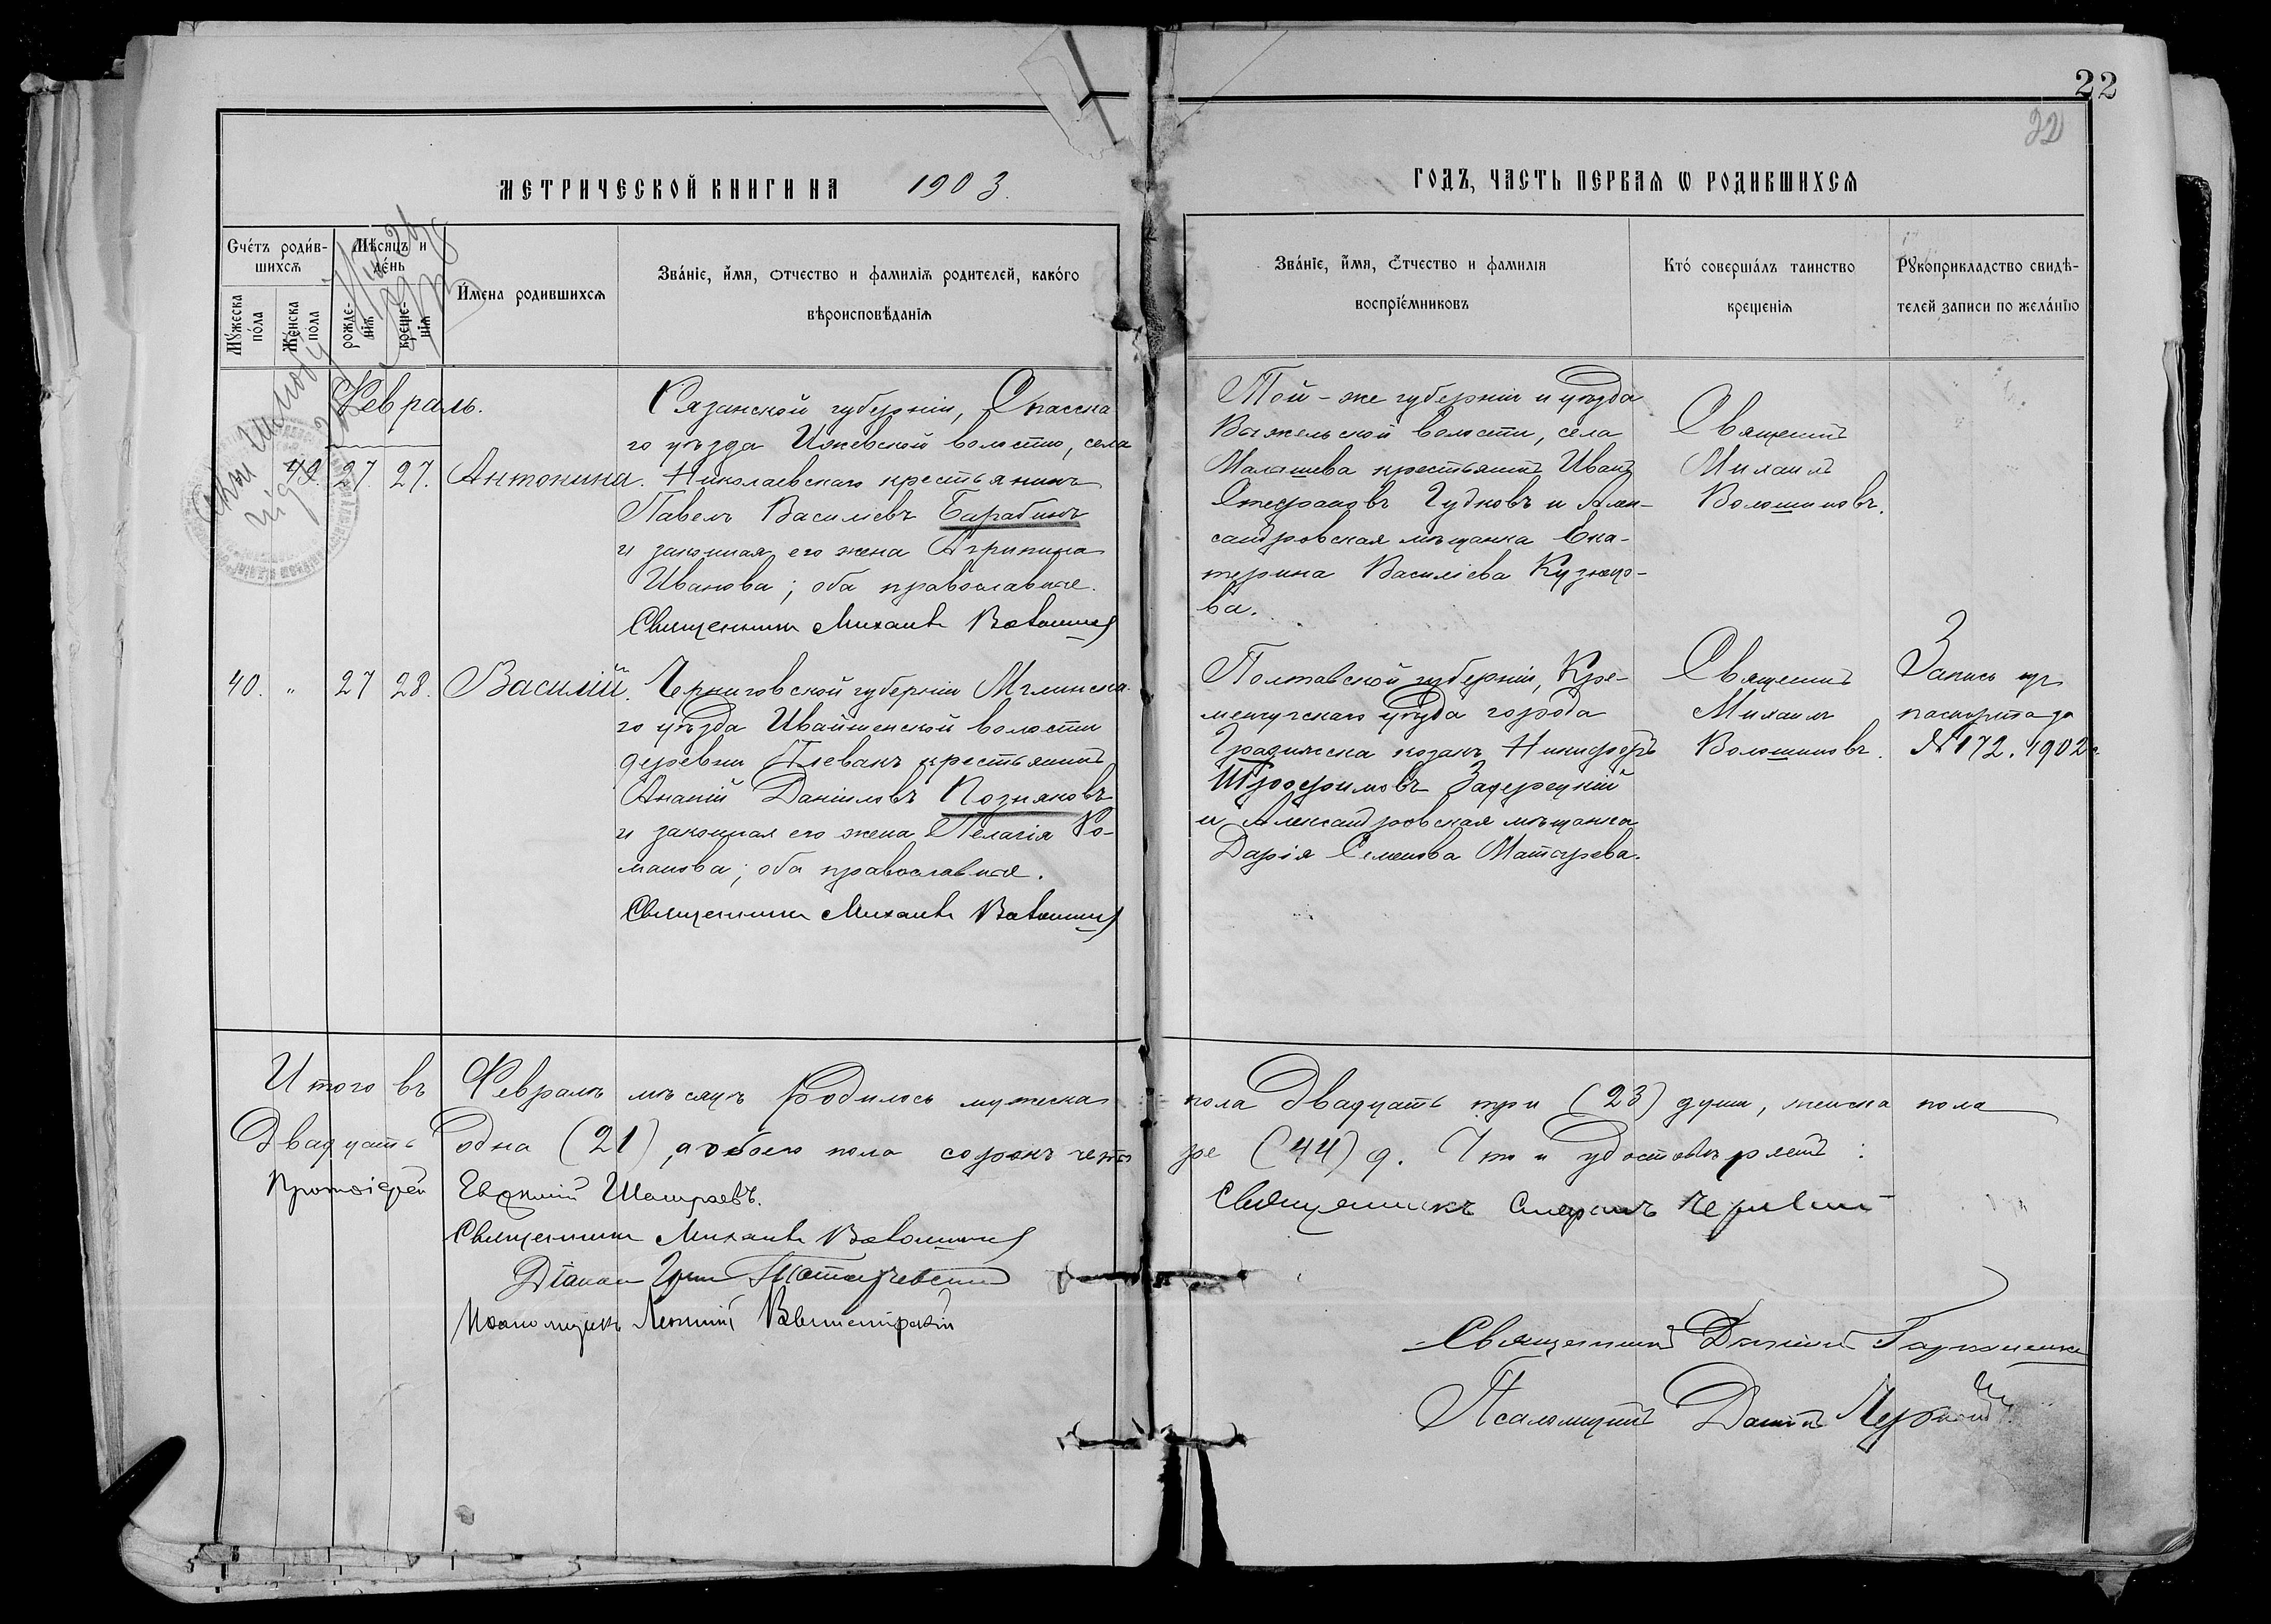 22
22
МЕТРИЧЕСКОЙ КНИГИ НА 1903.
ГОДЪ, ЧАСТЬ ПЕРВАЯ Ѡ РОДИВШИХСЯ
Сче́тъ роди́в-
шихсѧ
Мѣ́сяцъ и
де́нь
Мꙋ́жеска
по́ла
Же́нска
по́ла
рожде-
нїѧ
креще-
нїѧ
И҆мена родившихсѧ
Зва́нїе, и҆́мѧ, ѻтчество и фамилїѧ родителей, како́го
вѣроисповѣ́данїѧ
Зва́нїе, и҆́мѧ, ѻ҆тчество и фамилїѧ
воспрїе́мниковъ
Кто́ совершáлъ таинство
крещенїѧ
Рꙋкоприкладство свидѣ-
телей записи по жела́нїю
Февраль.
49. 27. 27. Антонина.
Рязанской губерніи, Спасска
го уѣзда Ижевской волости, села
Николаевскаго крестьянинъ
Павелъ Василіевъ Барабинъ
и законная его жена Агрипина
Иванова; оба православные.
Священникъ Михаилъ Волошинов
Той-же губерніи и уѣзда
волости, села
Малышева крестьянинъ Иванъ
Стефановъ Гудковъ и Алек-
сандровская мѣщанка Ека-
терина Василіева Кузнецо-
ва.
Священникъ
Михаилъ
Волошиновъ.
40. " 27 28. Василій.
Черниговской губерніи Мглинска-
го уѣзда Ивайтенской волости
деревни крестьянинъ
Ананій Даніиловъ Позняковъ
и законная его жена Пелагія Ро-
манова; оба православные.
Священникъ Михаилъ Волошинов
Полтавской губерніи, Кре-
менчугскаго уѣзда города
Градижска козакъ Никифоръ
Трофимовъ
и Александровская мѣщанка
Дарія Семенова
Священникъ
Михаилъ
Волошиновъ.
Запись изъ
паспорта за
№ 172. 1902 г.
Итого въ Февралѣ мѣсяцѣ родилось мужеска пола двадцать три (23) души, женска пола
двадцать одна (21), а обоего пола сорокъ четы ре (44) д. Что и удостовѣряютъ:
Протоіерей Евѳимій
Священникъ
Священникъ Михаилъ Волошинов
Діаконъ
Псаломщикъ
Священникъ
Псаломщикъ